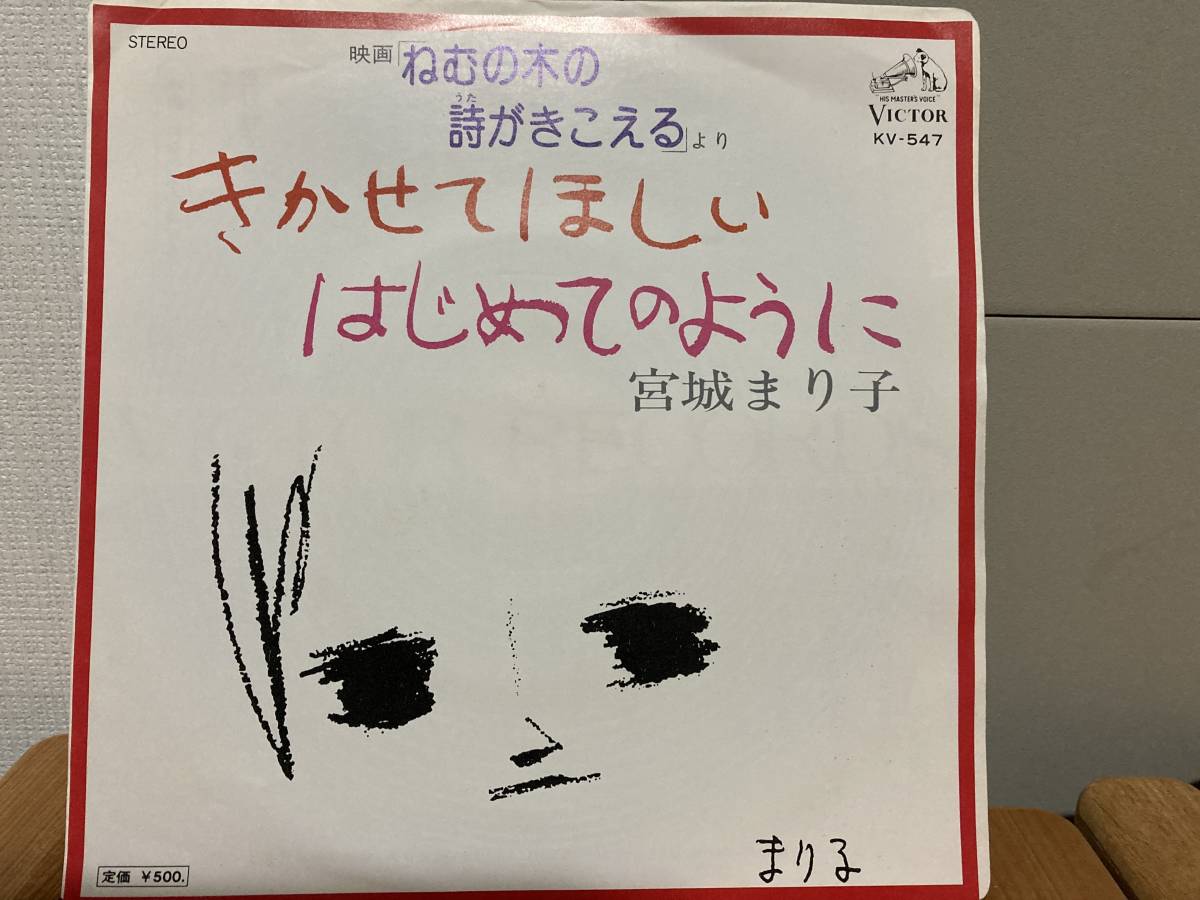 STEREO
映画「ねむの木の
詩がきこえる」より
うた
"HIS MASTER'S VOICE"
VICTOR
KV-547
きかせてほしい
はじめてのように
宮城まり子
まり子
定価 ¥500.